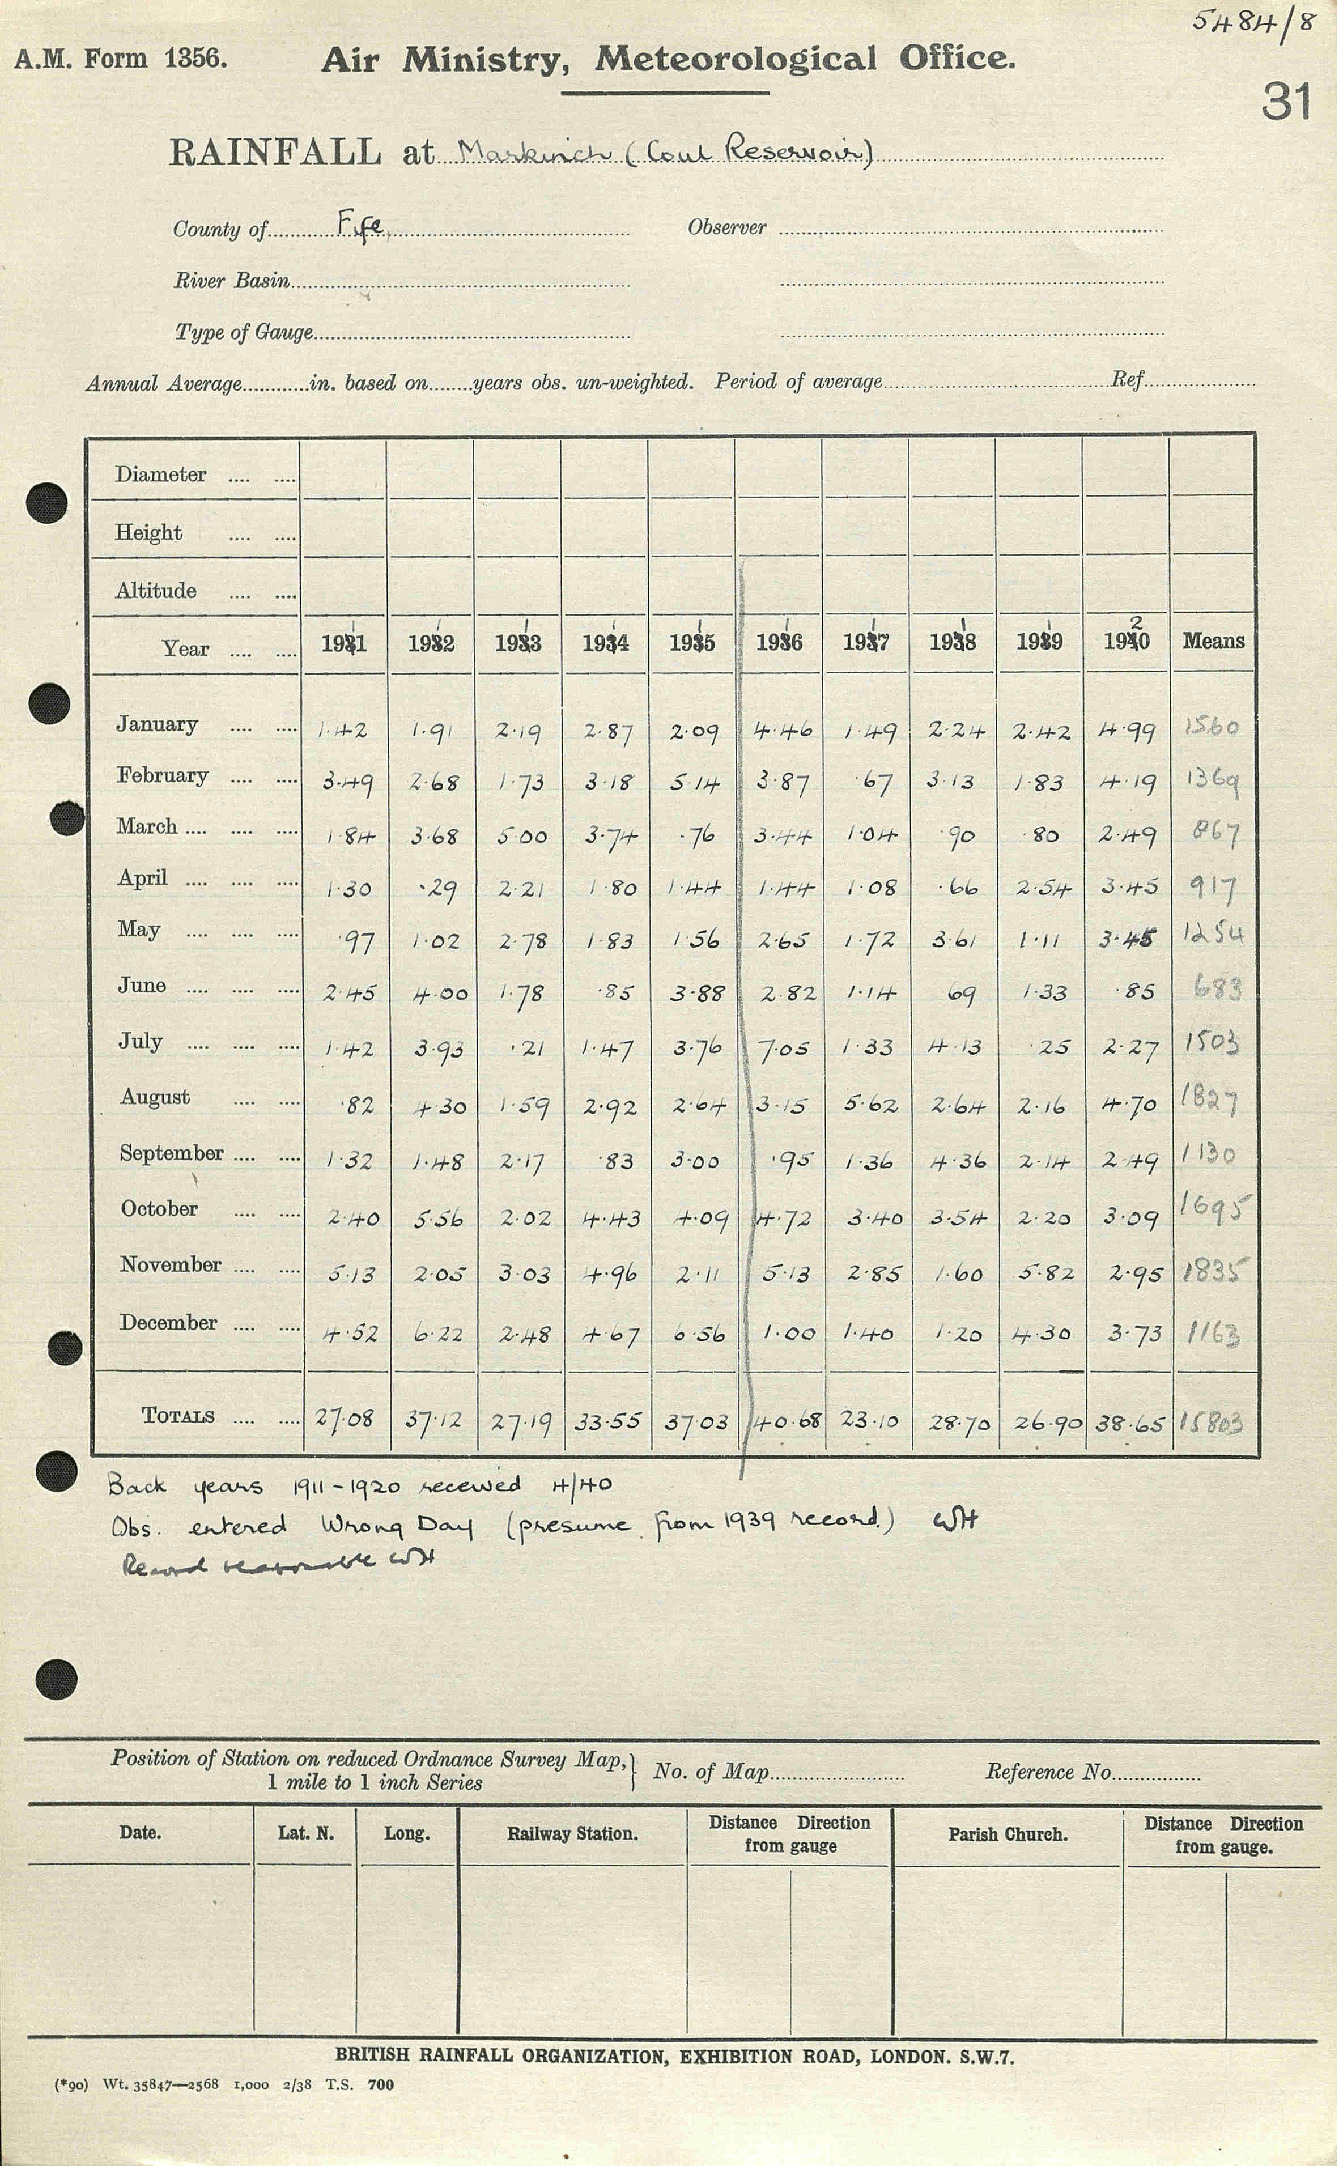 5484/8
A.M. Form 1356. Air Ministry, Meteorological Office.
31
RAINFALL at Markinch (Coul Reservoir)
County of Fife Observer
River Basin
Type of Gauge
Annual Average in. based on years obs. un-weighted. Period of average Ref.
Diameter
Height
Altitude
Year 1911 1912 1913 1914 1915 1916 1917 1918 1919 1920 Means
January 1.42 1.91 2.19 2.87 2.09 4.46 1.49 2.24 2.42 4.99 1560
February 3.49 2.68 1.73 3.18 5.14 3.87 .67 3.13 1.83 4.19 1369
March 1.84 3.68 5.00 3.74 .76 3.44 1.04 .90 .80 2.49 867
April 1.30 .29 2.21 1.80 1.44 1.44 1.08 .66 2.54 3.45 917
May .97 1.02 2.78 1.83 1.56 2.65 1.72 3.61 1.11 3.45 1254
June 2.45 4.00 1.78 .85 3.88 2.82 1.14 69 1.33 .85 683
July 1.42 3.93 .21 1.47 3.76 7.05 1.33 4.13 .25 2.27 1503
August .82 4.30 1.59 2.92 2.64 3.15 5.62 2.64 2.16 4.70 1827
September 1.32 1.48 2.17 .83 3.00 .95 1.36 4.36 2.14 2.49 1130
October 2.40 5.56 2.02 4.43 4.09 4.72 3.40 3.54 2.20 3.09 1695
November 5.13 2.05 3.03 4.96 2.11 5.13 2.85 1.60 5.82 2.95 1835
December 4.52 6.22 2.48 4.67 6.56 1.00 1.40 1.20 4.30 3.73 1163
TOTALS 27.08 37.12 27.19 33.55 37.03 40.68 23.10 28.70 26.90 38.65 15803
Back years 1911-1920 received 4/40
Obs. entered Wrong Day (presume from 1939 record.) WH
Record reasonable WH
Position of Station on reduced Ordnance Survey Map, No. of Map Reference No.
1 mile to 1 inch Series
Date. Lat. N. Long. Railway Station. Distance Direction from gauge Parish Church. Distance Direction from gauge.
BRITISH RAINFALL ORGANIZATION, EXHIBITION ROAD, LONDON. S.W.7.
(*90) Wt. 35847—2568 1,000 2/38 T.S. 700